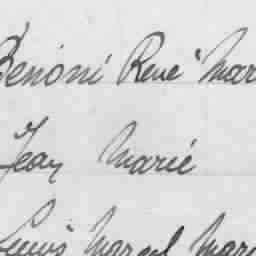 Benoni René Mar
Jean Marie
Louis Marcel Marie